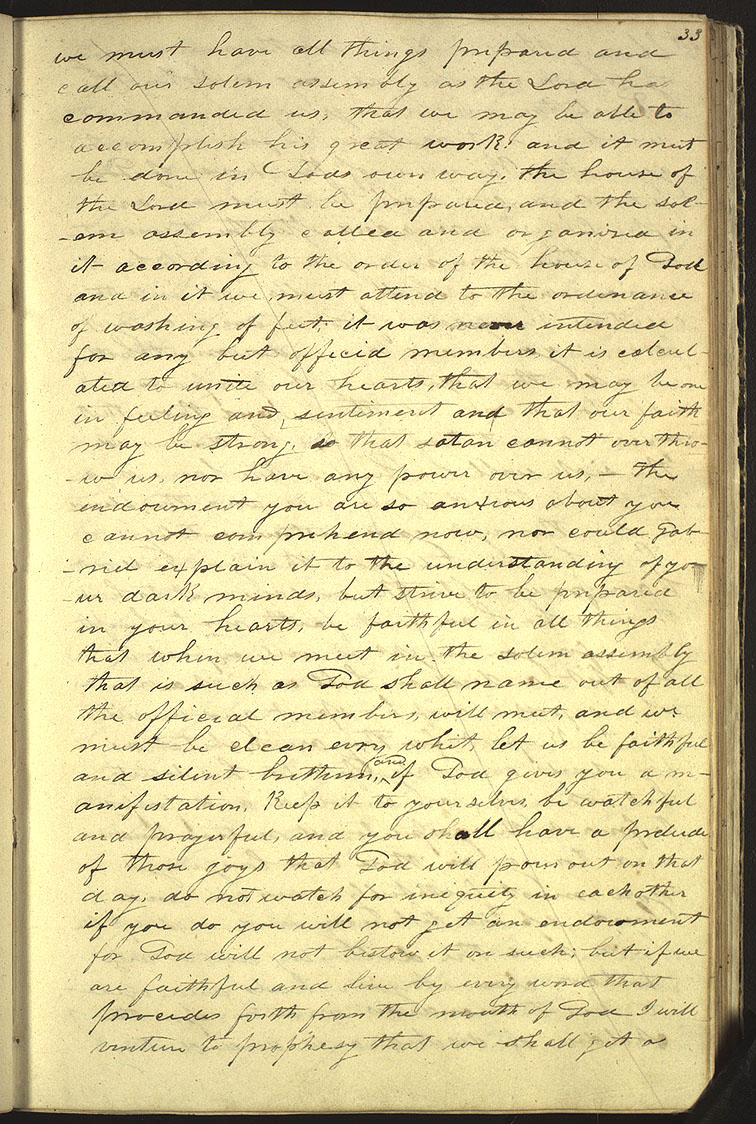 33
we must have all things prepared and
call our solem assembly as the Lord has
commanded us, that we may be able to
accomplish his great work: and it must
be done in Gods own way, the house of
the Lord must be prepared, and the sol-
-em assembly called and organized in
it according to the order of the house of God
and in it we must attend to the ordinance
of washing of feet; it was never intended
for any but official members, it is calcul-
ated to unite our hearts, that we may be one
in feeling and sentiment and that our faith
may be strong, so that satan cannot over thro-
-w us, nor have any power over us,— the
endowment you are so anxious about you
cannot comprehend now, nor could Gab-
-riel explain it to the understanding of yo-
-ur dark minds, but strive to be prepared
in your hearts, be faithful in all things
that when we meet in the solem assembly
that is such as God shall name out of all
the official members, will meet, and we
must be clean evry whit, let us be faithful
and silent brethren, and if God gives you a m-
anifestation, keep it to yourselves, be watchful
and prayerful, and you shall have a prelude
of those joys that God will pour out on that
day, do not watch for iniquity in each other
if you do you will not get an endowment
for God will not bestow it on such; but if we
are faithful and live by every word that
procedes forth from the mouth of God I will
venture to prophesy that we shall get a